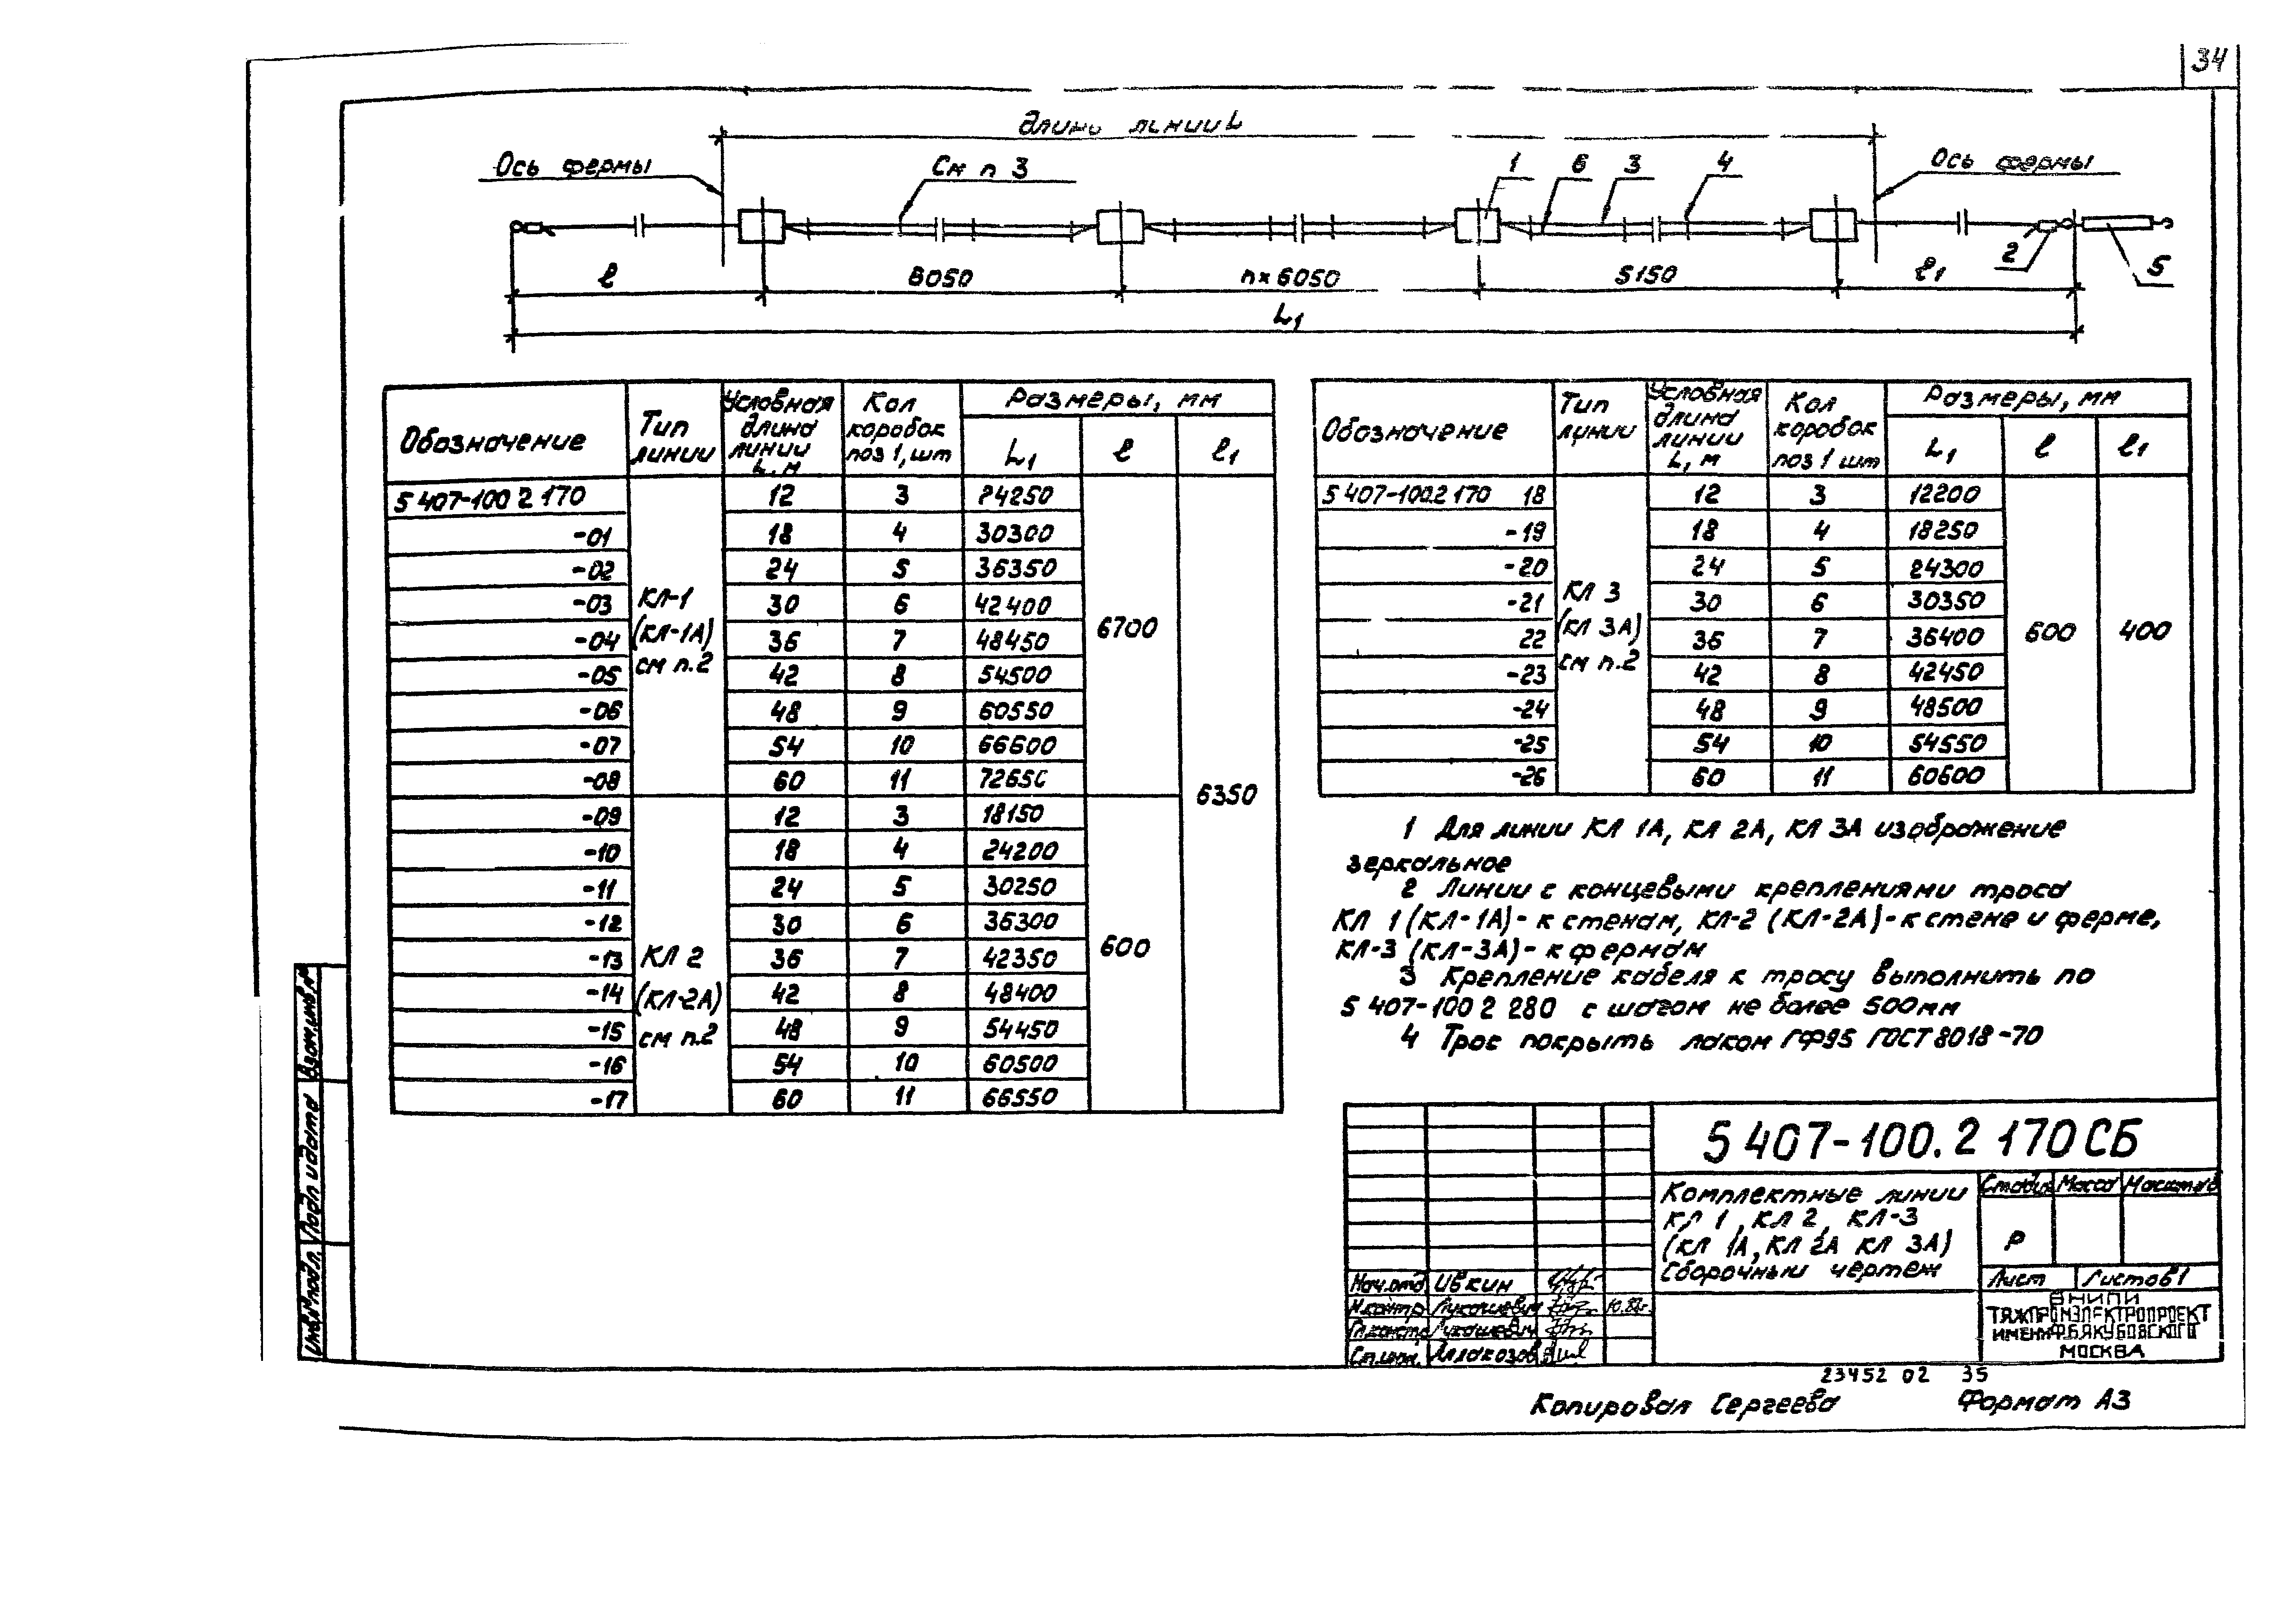 34
длина линии L
Ось фермы
См п 3
1 6 3 4
Ось фермы
2 5
l 6050 n×6050 5150 l1
L1
Обозначение Тип линии Условная длина линии L, м Кол коробок поз 1, шт Размеры, мм
L1 l l1
5 407-100 2 170 12 3 24250
-01 18 4 30300
-02 24 5 36350
-03 30 6 42400
-04 36 7 48450
-05 42 8 54500
-06 48 9 60550
-07 54 10 66600
-08 60 11 72650
КЛ-1
(КЛ-1А)
см п.2
6700
6350
-09 12 3 18150
-10 18 4 24200
-11 24 5 30250
-12 30 6 36300
-13 36 7 42350
-14 42 8 48400
-15 48 9 54450
-16 54 10 60500
-17 60 11 66550
КЛ 2
(КЛ-2А)
см п.2
600
Обозначение Тип линии Условная длина линии L, м Кол коробок поз 1 шт Размеры, мм
L1 l l1
5 407-100.2 170 18 12 3 12200
-19 18 4 18250
-20 24 5 24300
-21 30 6 30350
22 36 7 36400
-23 42 8 42450
-24 48 9 48500
-25 54 10 54550
-26 60 11 60600
КЛ 3
(КЛ 3А)
см п.2
600 400
1 Для линии КЛ 1А, КЛ 2А, КЛ 3А изображение
зеркальное
2 Линии с концевыми креплениями троса
КЛ 1 (КЛ-1А)- к стенам, КЛ-2 (КЛ-2А)- к стене и ферме,
КЛ-3 (КЛ-3А)- к фермам
3 Крепление кабеля к тросу выполнить по
5 407-100 2 280 с шагом не более 500мм
4 Трос покрыть лаком ГФ95 ГОСТ 8018-70
5 407-100.2 170 СБ
Комплектные линии
КЛ 1, КЛ 2, КЛ-3
(КЛ 1А, КЛ 2А КЛ 3А)
Сборочный чертеж
Стадия Масса Масштаб
Р
Лист Листов 1
ВНИПИ
ТЯЖПРОМЭЛЕКТРОПРОЕКТ
ИМЕНИ Ф.Б.ЯКУБОВСКОГО
МОСКВА
Нач.отд Ивкин
Н.контр Лукашевич
Гл.констр Лукашевич
Ст.инж.
Взам.инв.№
Подп и дата
Инв.№ подл.
23452 02 35
Копировал Сергеева Формат А3